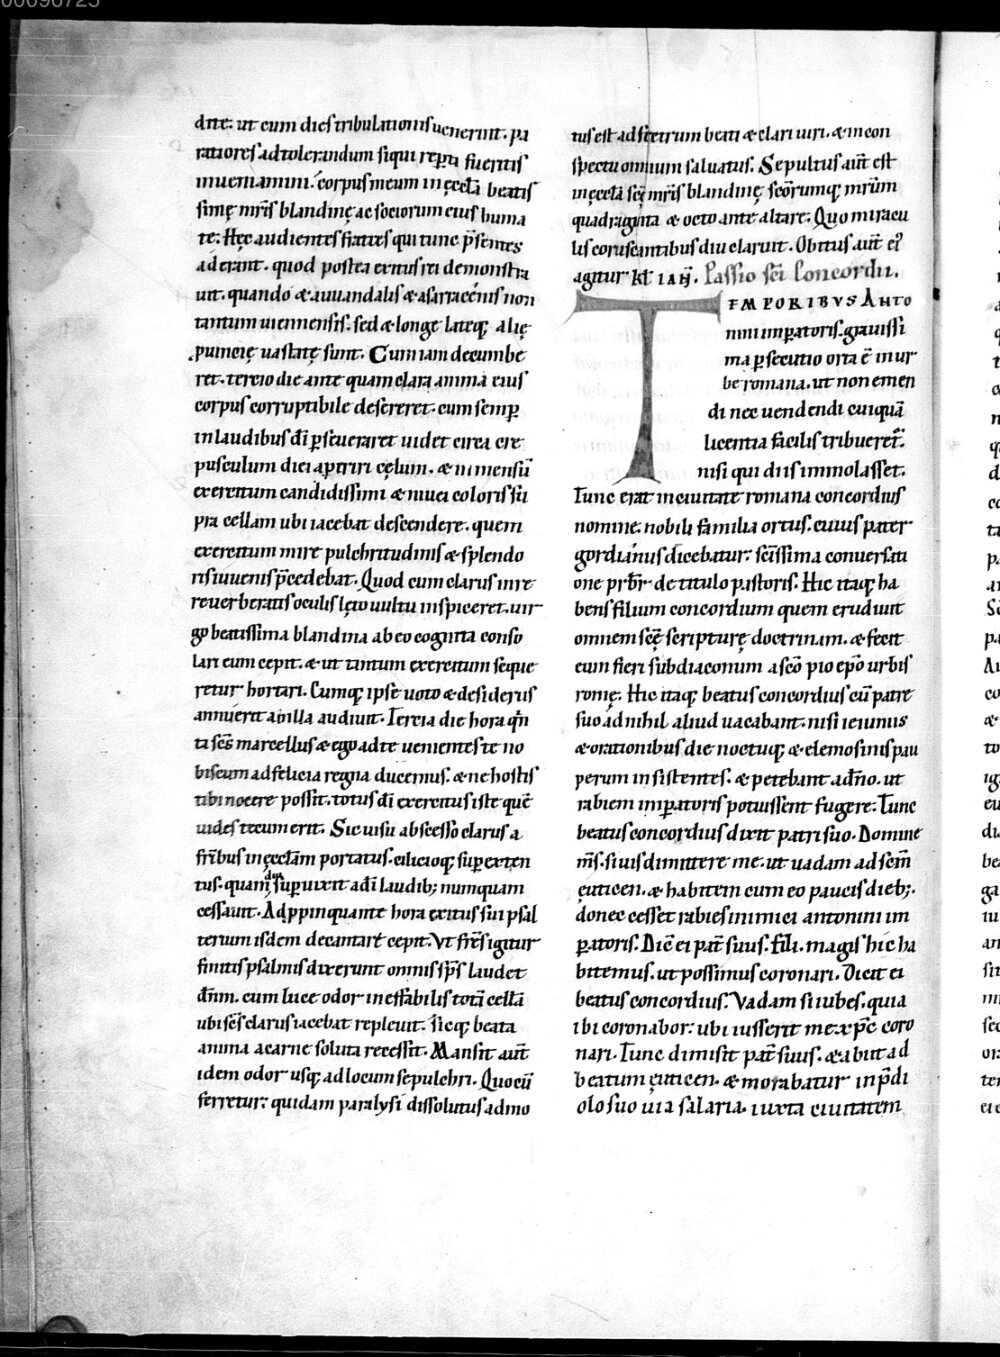 00098725
dite. ut cum dies tribulationis uenerint. pa
ratiores ad tolerandum siqui rep̄ti fueritis
inueniamini. corpus meum in ęcc̄ta beatis
simę mr̄is blandinę ac sociorum eius huma
te. Hęc audientes fratres qui tunc p̄sentes
aderant. quod postea exitus rei demonstra
uit. quando & a uuandalis & a sarracenis non
tantum uiennensis. sed & longe lateq; alię
puincię uastatę sunt. Cum iam decumbe
ret. tercio die ante quam clara anima eius
corpus corruptibile desereret. cum semp̄
in laudibus dī p̄seueraret uidet circa cre
pusculum diei aperiri cęlum. & inmensū
exercitum candidissimi & niuei coloris su
pra cellam ubi iacebat descendere. quem
exercitum mire pulchritudinis & splendo
ris iuuenis p̄cedebat. Quod cum clarus in re
reuerberatis oculis lęto uultu inspiceret. uir
go beatissima blandina ab eo cognita conso
lari eum cepit. & ut tantum exercitum seque
retur hortari. Cumq; ipse uoto & desideriis
annuerit ab illa audiuit. Tercia die hora qn̄
ta sc̄s marcellus & ego ad te uenientes te no
biscum ad felicia regna ducemus. & ne hostis
tibi nocere possit. totus dī exercitus iste quē
uides tecum erit. Sic uisu abscesso clarus a
fr̄ibus in ęccłam portatus. cilicioq; sup̱ exten
tus. quam diu sup̱uixit a dī laudib; numquam
cessauit. Adp̱pinquante hora exitus sui psal
terium isdem decantare cepit. Vt fr̄es igitur
finitis psalmis dixerunt omnis sp̄s laudet
dn̄m. cum luce odor ineffabilis totā cellā
ubi sc̄s clarus iacebat repleuit. sicq; beata
anima a carne soluta recessit. Mansit aut̄
idem odor usq; ad locum sepulchri. Quo cū
ferretur. quidam paralysi dissolutus admo
tus est ad feretrum beati & clari uiri. & in con
spectu omnium saluatus. Sepultus aut̄ est
in ęccła sc̄ę mr̄is blandinę sc̄orumq; mr̄um
quadraginta & octo ante altare. Quo miracu
lis coruscantibus diu claruit. Obitus aut̄ ei᾽
agitur kł iaɴ̄. Passio sc̄i Concordii.
TEMPORIBVS ANTO
nini imp̱atoris. grauissi
ma p̱secutio orta ē in ur
be romana. ut non emen
di nec uendendi cuiquā
licentia facilis tribueret̄.
nisi qui diis immolasset.
Tunc erat in ciuitate romana concordius
nomine. nobili familia ortus. cuius pater
gordianus dicebatur. sc̄issima conuersati
one prb̄r de titulo pastoris. Hic itaq; ha
bens filium concordium quem erudiuit
omnem sc̄ę scripturę doctrinam. & fecit
eum fieri subdiaconum a sc̄o pio ep̄o urbis
romę. Hic itaq; beatus concordius cū patre
suo ad nihil aliud uacabant. nisi ieiuniis
& orationibus die noctuq; & elemosinis pau
perum insistentes. & petebant a dn̄o. ut
rabiem imp̱atoris potuissent fugere. Tunc
beatus concordius dixit patri suo. Domine
m̄s. si uis dimittere me. ut uadam ad sc̄m
euticen. & habitem cum eo paucis dieb;.
donec cesset rabies inimici antonini im
p̱atoris. Dic̄ ei pat̄ suus. fili. magis hic ha
bitemus. ut possimus coronari. Dicit ei
beatus concordius. Vadam si iubes. quia
ibi coronabor. ubi iusserit me xp̄c coro
nari. Tunc dimisit pat̄ suus. & abiit ad
beatum euticen. & morabatur in p̄di
olo suo uia salaria. iuxta ciuitatem